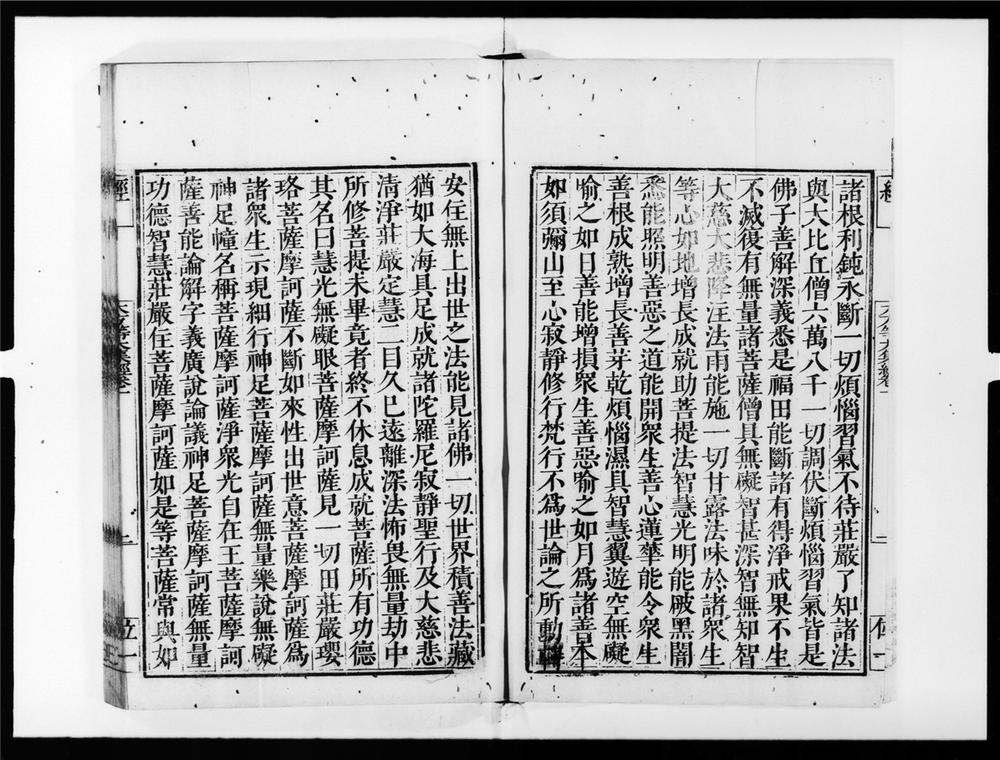 諸根利鈍永斷一切煩惱習氣不待莊嚴了知諸法
與大比丘僧六萬八千一切調伏斷煩惱習氣皆是
佛子善解深義悉是福田能斷諸有得淨戒果不生
不滅復有無量諸菩薩僧具無礙智甚深智無知智
大慈大悲降注法雨能施一切甘露法味於諸衆生
等心如地增長成就助菩提法智慧光明能破黑闇
悉能照明善惡之道能開衆生善心蓮華能令衆生
善根成熟增長善芽乾煩惱濕具智慧翼遊空無礙
喻之如日善能增損衆生善惡喻之如月爲諸善本
如須彌山至心寂靜修行梵行不爲世論之所動轉
安住無上出世之法能見諸佛一切世界積善法藏
猶如大海具足成就諸陀羅尼寂靜聖行及大慈悲
清淨莊嚴定慧二目久已遠離深法怖畏無量劫中
所修菩提未畢竟者終不休息成就菩薩所有功德
其名曰慧光無礙眼菩薩摩訶薩見一切田莊嚴瓔
珞菩薩摩訶薩不斷如來性出世意菩薩摩訶薩爲
諸衆生示現細行神足菩薩摩訶薩無量樂說無礙
神足幢名稱菩薩摩訶薩淨衆光自在王菩薩摩訶
薩善能論解字義廣說論議神足菩薩摩訶薩無量
功德智慧莊嚴住菩薩摩訶薩如是等菩薩常與如
經一